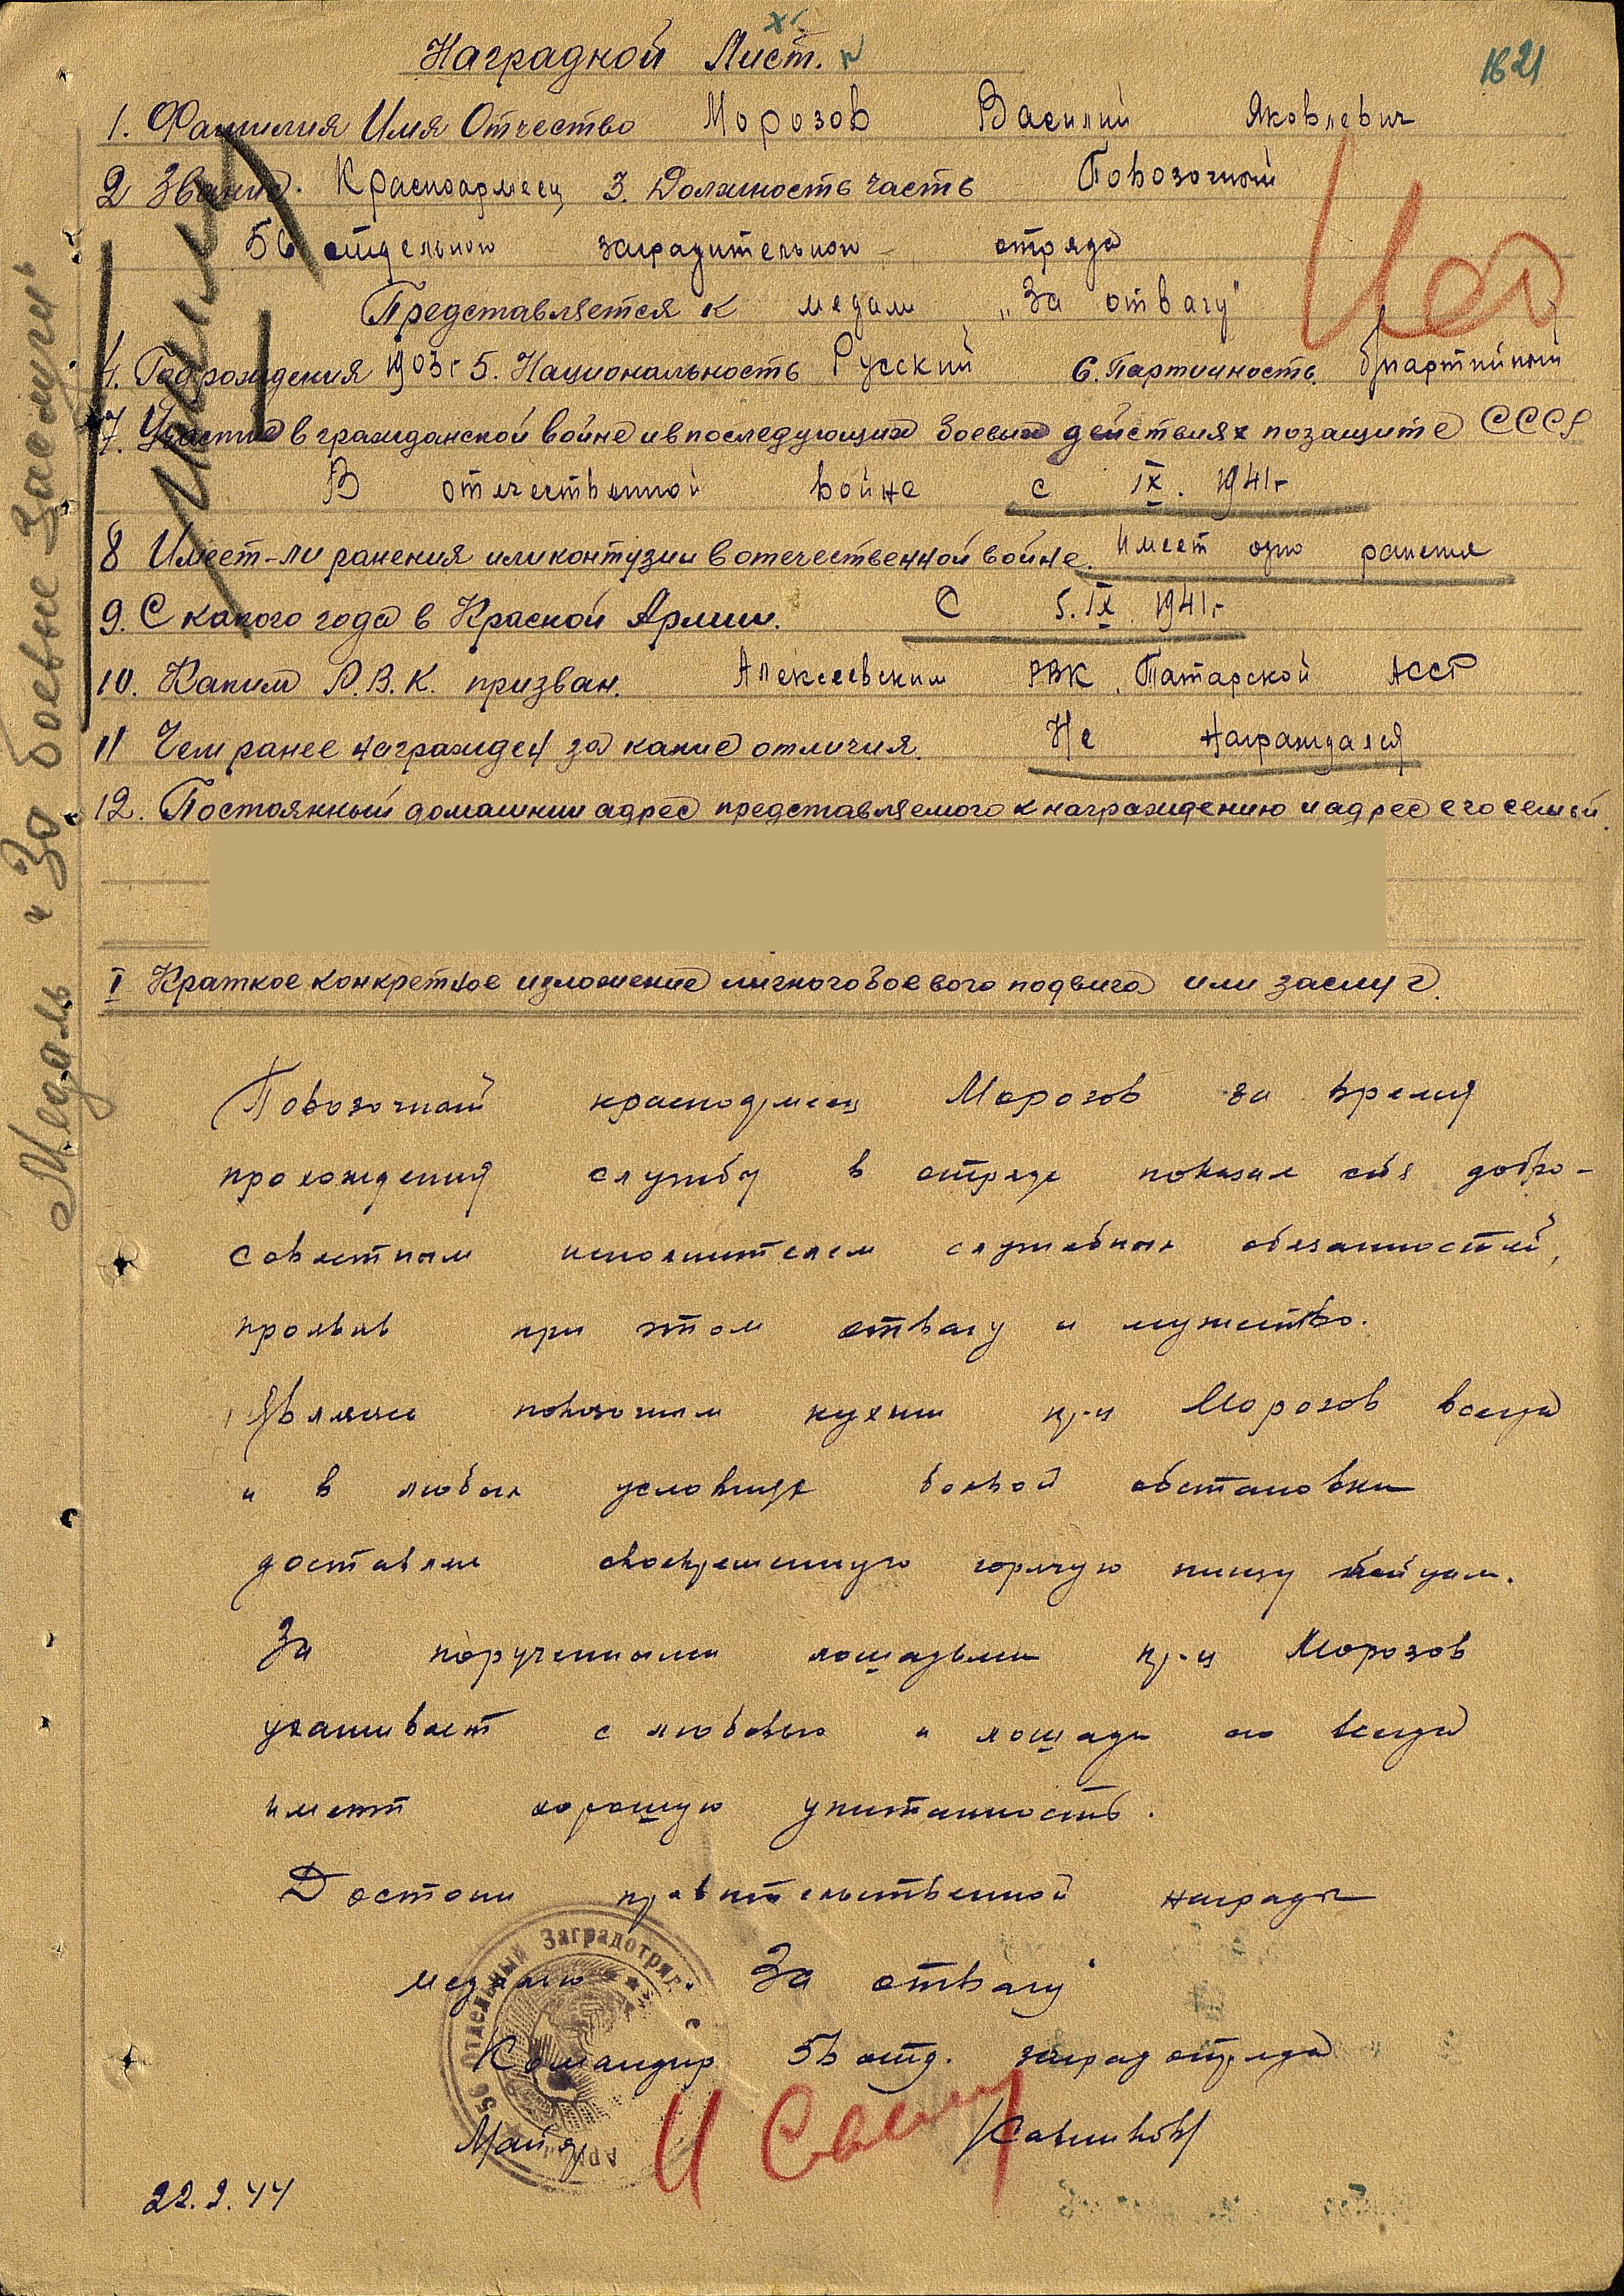 1621
Наградной Лист.
1. Фамилия Имя Отчество Морозов Василий Яковлевич
2 Звание. Красноармеец 3. Должность часть Повозочный
56 отдельного заградительного отряда
Представляется к медали „За отвагу"
4. Год рождения 1903г 5. Национальность Русский 6. Партийность. б/партийный
7. Участие в гражданской войне и в последующих боевых действиях по защите СССР
В отечественной войне с IX. 1941г
8 Имеет-ли ранения или контузии в отечественной войне. Имеет одно ранения
9. С какого года в Красной Армии. С 5. IX 1941г
10. Каким Р.В.К. призван. Алексеевским РВК Татарской АССР
11 Чем ранее награжден за какие отличия. Не награждался
12. Постоянный домашний адрес представляемого к награждению и адрес его семьи.
I Краткое конкретное изложение личного боевого подвига или заслуг.
Повозочный красноармеец Морозов за время
прохождения службы в отряде показал себя добро-
совестным исполнителем служебных обязанностей,
проявив при этом отвагу и мужество.
Являясь повозочным кухни кр-ц Морозов всегда
и в любых условиях боевой обстановки
доставлял своевременную горячую пищу бойцам.
За порученными лошадьми кр-ц Морозов
ухаживает с любовью и лошади его всегда
имеют хорошую упитанность.
Достоин правительственной награды
медалью „За отвагу"
Командир 56 отд. заградотряда
Майор /Савинков/
22.2.44
56 Отдельный Заградотряд
Медаль „За боевые заслуги"